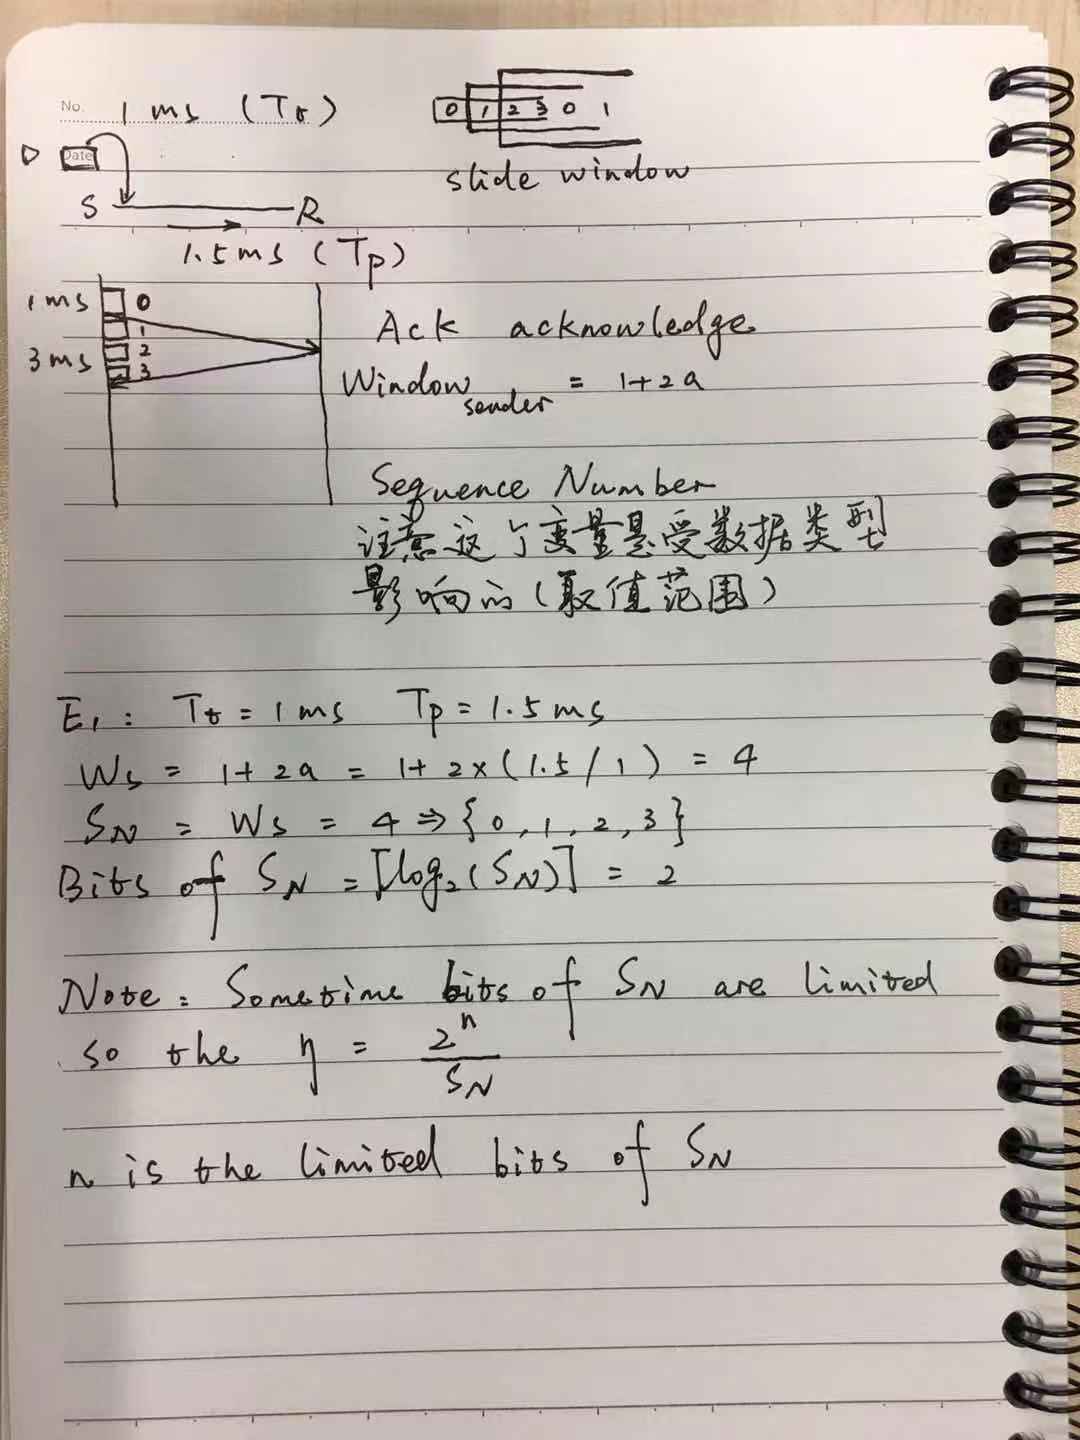 No.
1 ms (Tt)
0 1 2 3 0 1
D
Date
slide window
S R
1.5 ms (Tp)
1 ms 0
1
2
3 ms 3
Ack acknowledge
Window sender = 1+2a
Sequence Number
注意这个变量是受数据类型
影响的(取值范围)
E1: Tt = 1 ms Tp = 1.5 ms
Ws = 1+2a = 1+2×(1.5/1) = 4
SN = Ws = 4 ⇒ {0, 1, 2, 3}
Bits of SN = ⌈log₂(SN)⌉ = 2
Note: Sometime bits of SN are limited
so the η = 2ⁿ/SN
n is the limited bits of SN